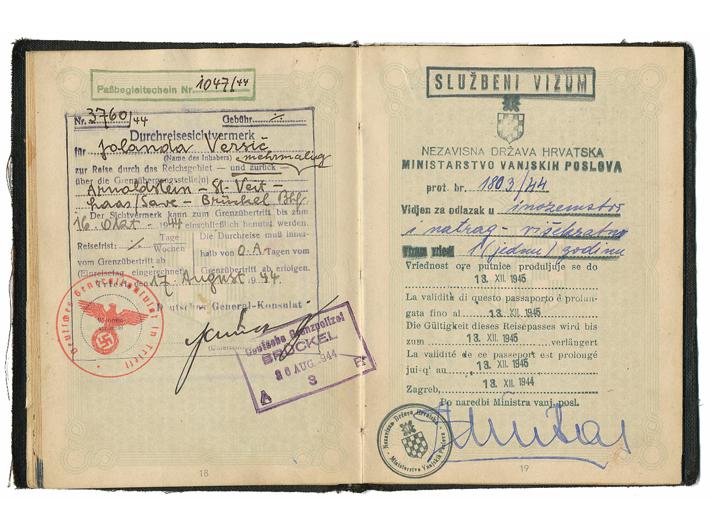 Paßbegleitschein Nr. 1047/44
Nr. 3760/44 Gebühr: ./.
Durchreisesichtvermerk
für Jolanda Versić
(Name des Inhabers) mehrmalig
zur Reise durch das Reichsgebiet – und zurück –
über die Grenzübergangsstelle(n)
Arnoldstein – St. Veit –
Laas/Save – Brückel Bhf.
Der Sichtvermerk kann zum Grenzübertritt bis zum
16. Okt. 1944 einschließlich benutzt werden.
Reisefrist: ./. Tage Wochen Die Durchreise muß innerhalb von O.A. Tagen vom
vom Grenzübertritt ab Grenzübertritt ab erfolgen.
(Einreisetag eingerechnet)
17. August 1944.
Deutsches General-Konsulat
Deutsche Grenzpolizei
BRÜCKEL
AUG. 1944
A 3 E
18
SLUŽBENI VIZUM
NEZAVISNA DRŽAVA HRVATSKA
MINISTARSTVO VANJSKIH POSLOVA
prot. br. 1803/44
Vidjen za odlazak u inozemstvo
i natrag – višekratno
1 (jednu) godinu
Vriednost ove putnice produljuje se do
13. XII. 1945
La validità di questo passaporto è prolun-
gata fino al 13. XII. 1945
Die Gültigkeit dieses Reisepasses wird bis
zum 13. XII. 1945 verlängert
La validité de ce passeport est prolongé
jui-qu' au 13. XII. 1945
Zagreb, 13. XII. 1944
Po naredbi Ministra vanj. posl.
Nezavisna Država Hrvatska
Ministarstvo Vanjskih Poslova
19